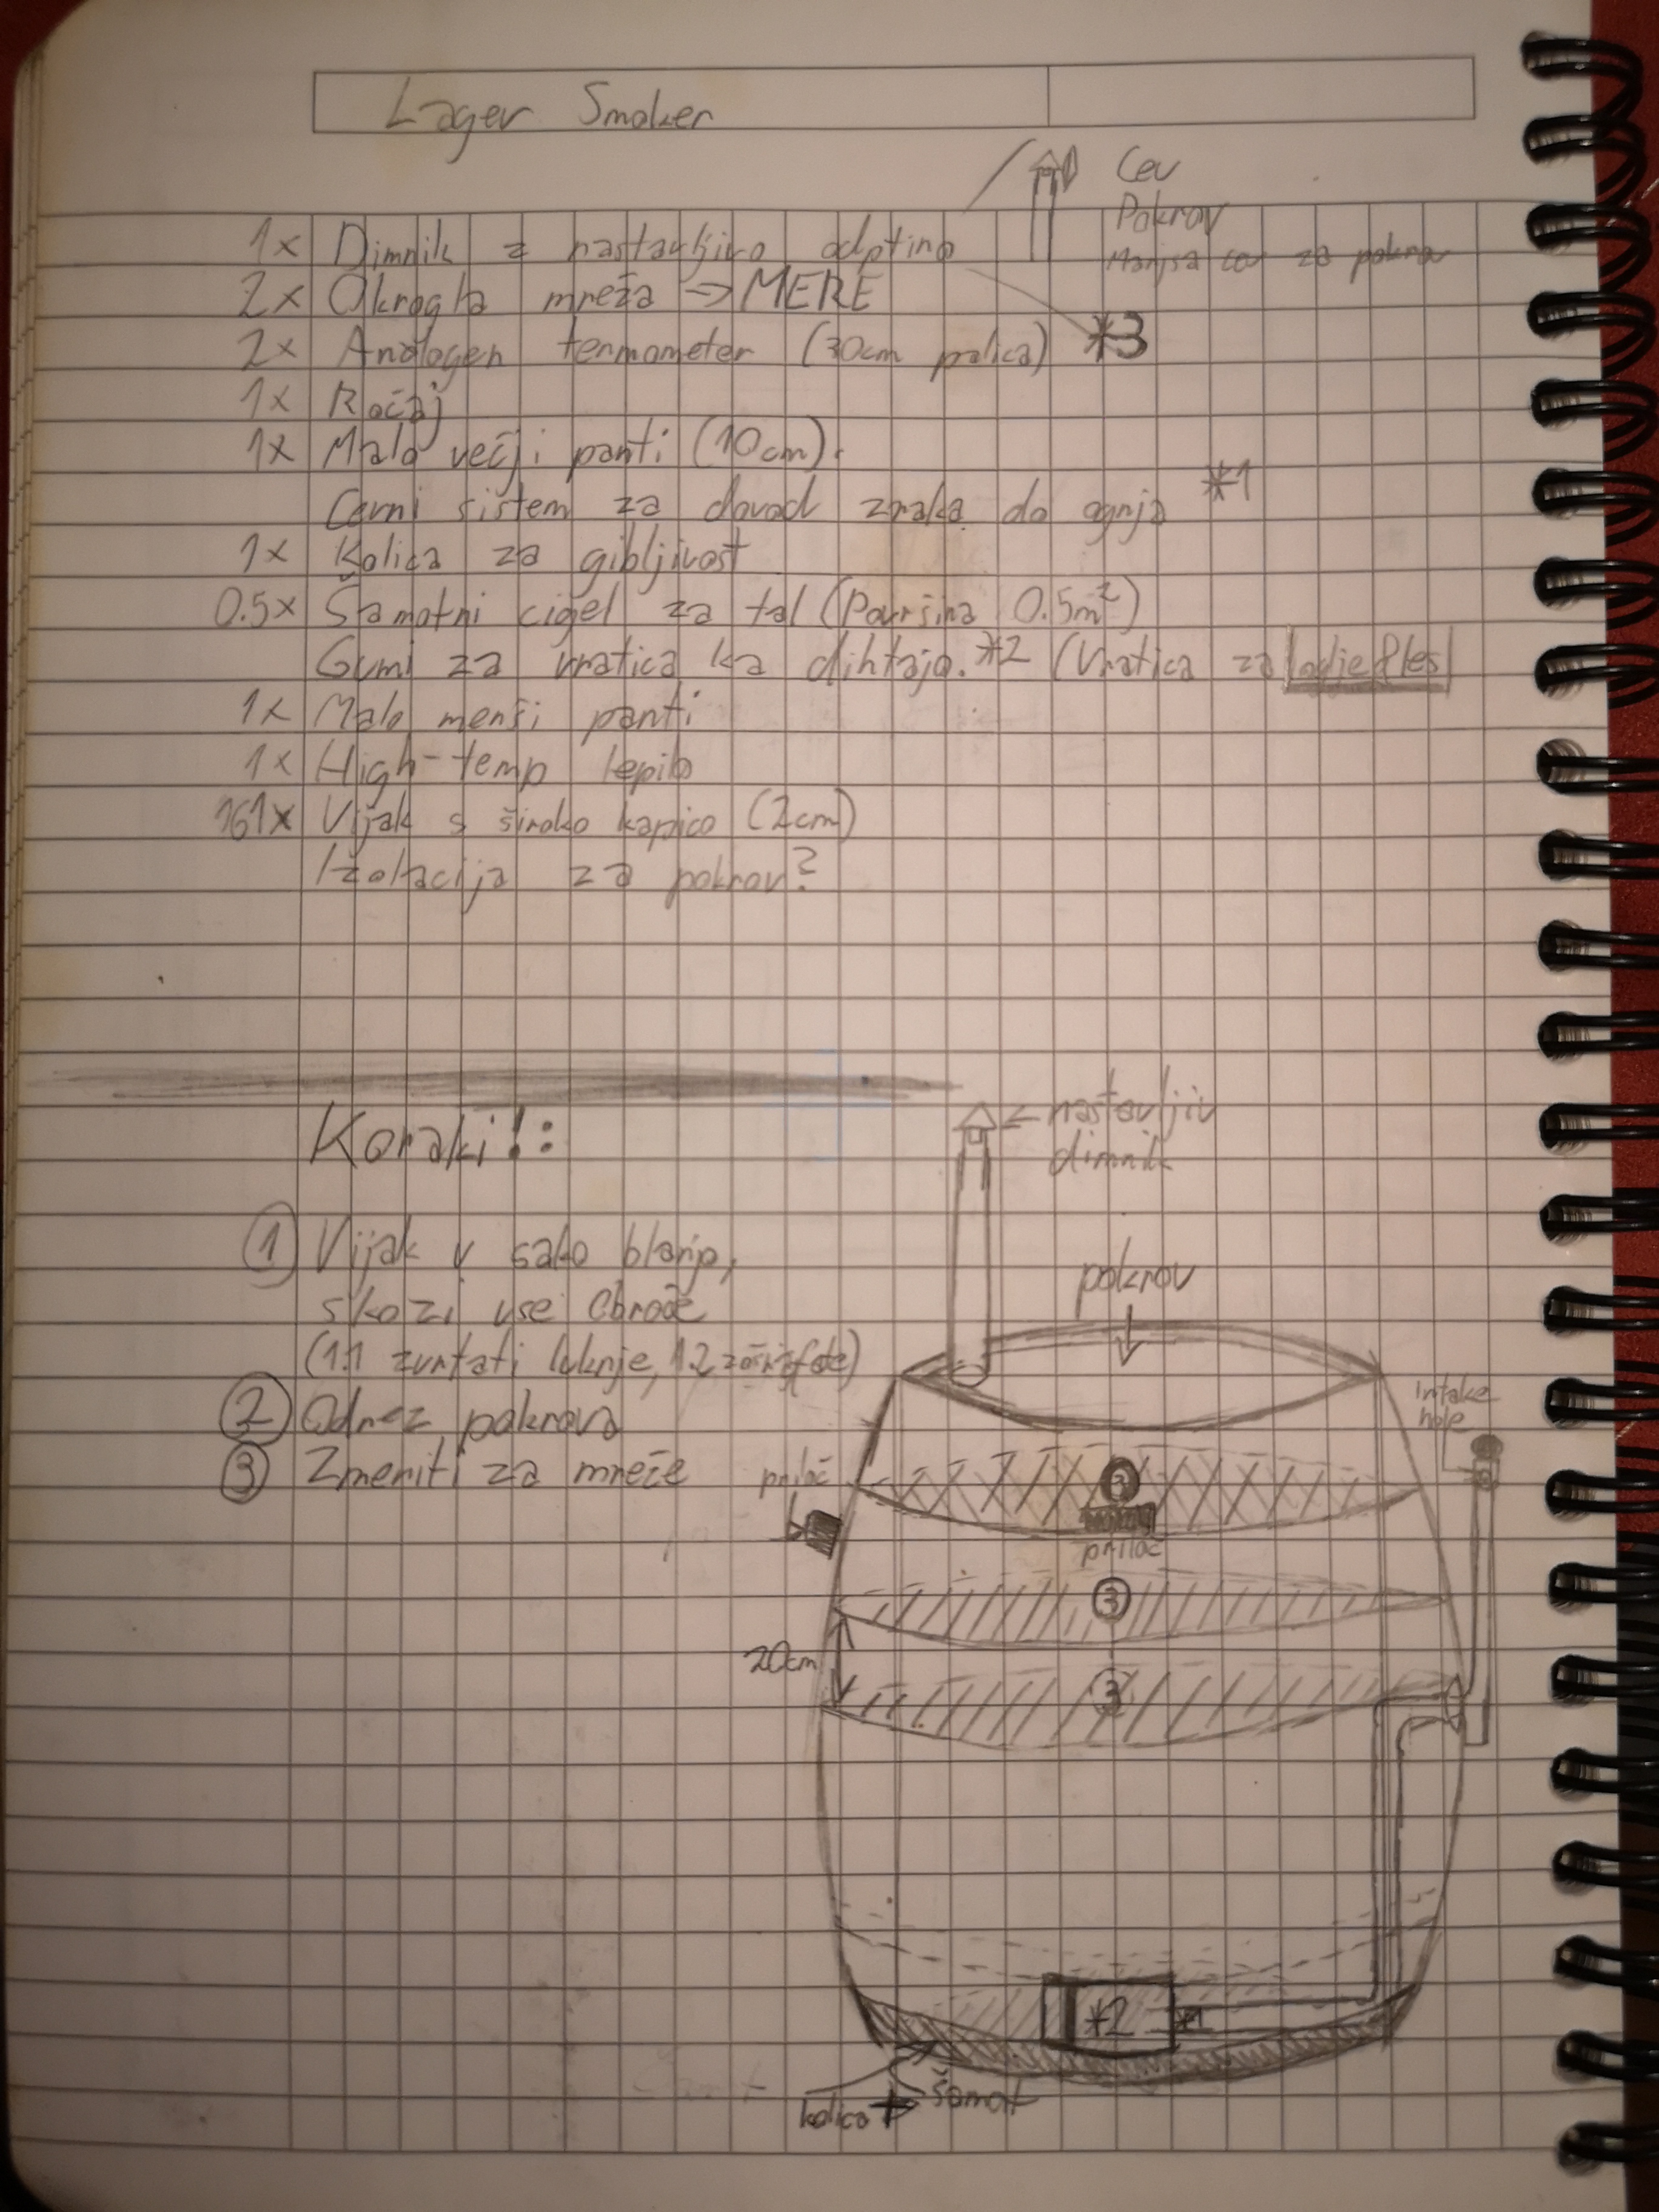 Lager Smoker
Cev
Pokrov
Manjša cev za pokrov
1x Dimnik z nastavljivo odptino
2x Okrogla mreža → MERE
2x Analogen termometer (30cm palica) *3
1x Ročaj
1x Malo večji panti (10cm).
Cevni sistem za dovod zraka do ognja *1
1x Kolica za gibljivost
0.5x Šamotni cigel za tal (Površina 0.5m²)
Gumi za vratica ka dihtajo. *2 (Vratica za
1x Malo menši panti
1x High-temp lepilo
161x Vijak s široko kapico (2cm)
Izolacija za pokrov?
Koraki!:
← nastavljiv
dimnik
① Vijak v sako blanjo,
skozi vse obroče
(1.1 zvrtati luknje, 1.2
② Odrez pokrova
③ Zmeriti za mreže
pokrov
Intake
hole
priloč
3
priloč
3
20cm
3
*2 *1
kolica
šamot